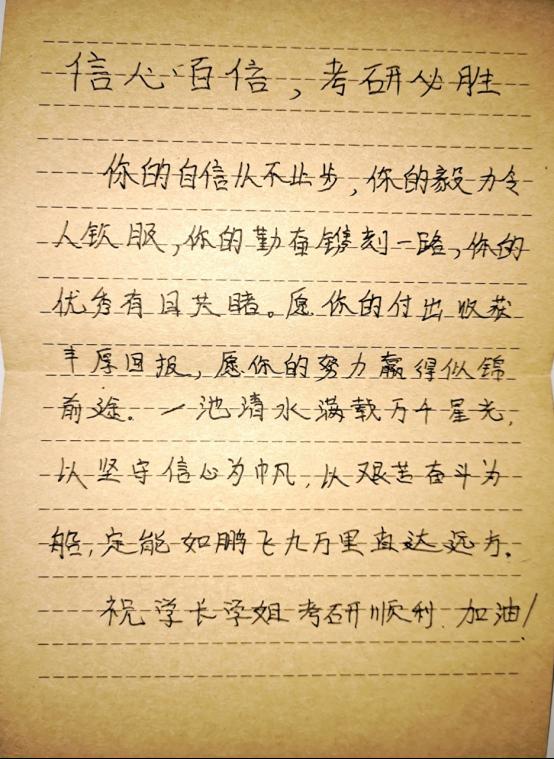 信心百倍，考研必胜
你的自信从不止步，你的毅力令
人钦服，你的勤奋镌刻一路，你的
优秀有目共睹。愿你的付出收获
丰厚回报，愿你的努力赢得似锦
前途。一池清水满载万千星光，
以坚守信心为帆，以艰苦奋斗为
船，定能如鹏飞九万里直达远方。
祝学长学姐考研顺利 加油！